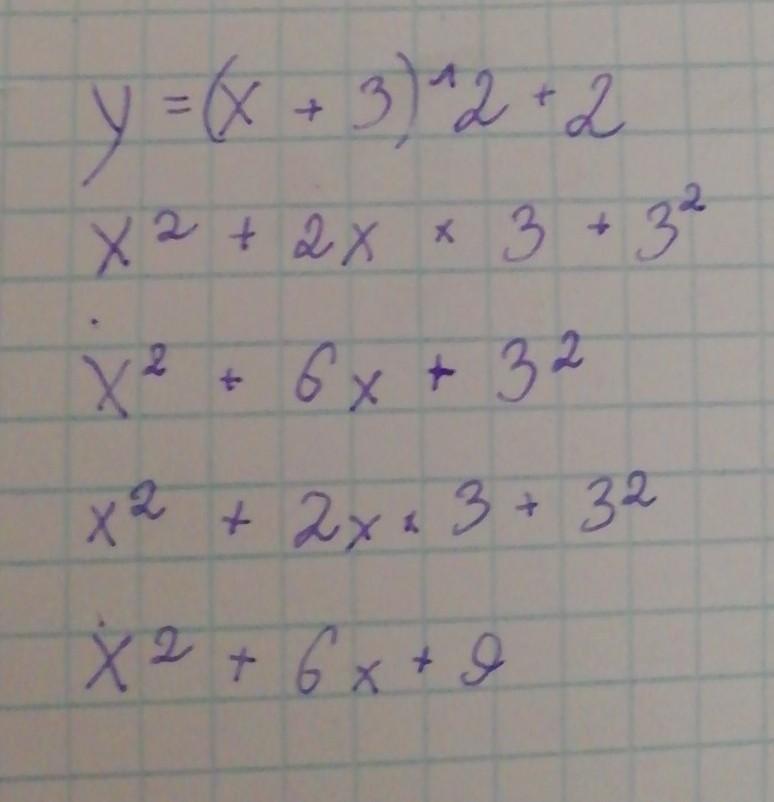 y = (x + 3)^2 + 2
x² + 2x × 3 + 3²
x² + 6x + 3²
x² + 2x × 3 + 3²
x² + 6x + 9